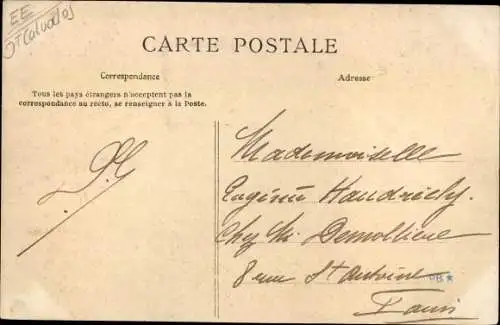 EE
(Calvados)
CARTE POSTALE
Correspondance
Adresse
Tous les pays étrangers n'acceptent pas la
correspondance au recto, se renseigner à la Poste.
Mademoiselle
Eugénie
Chez Mr Demollière
8 rue St Antoine
Paris